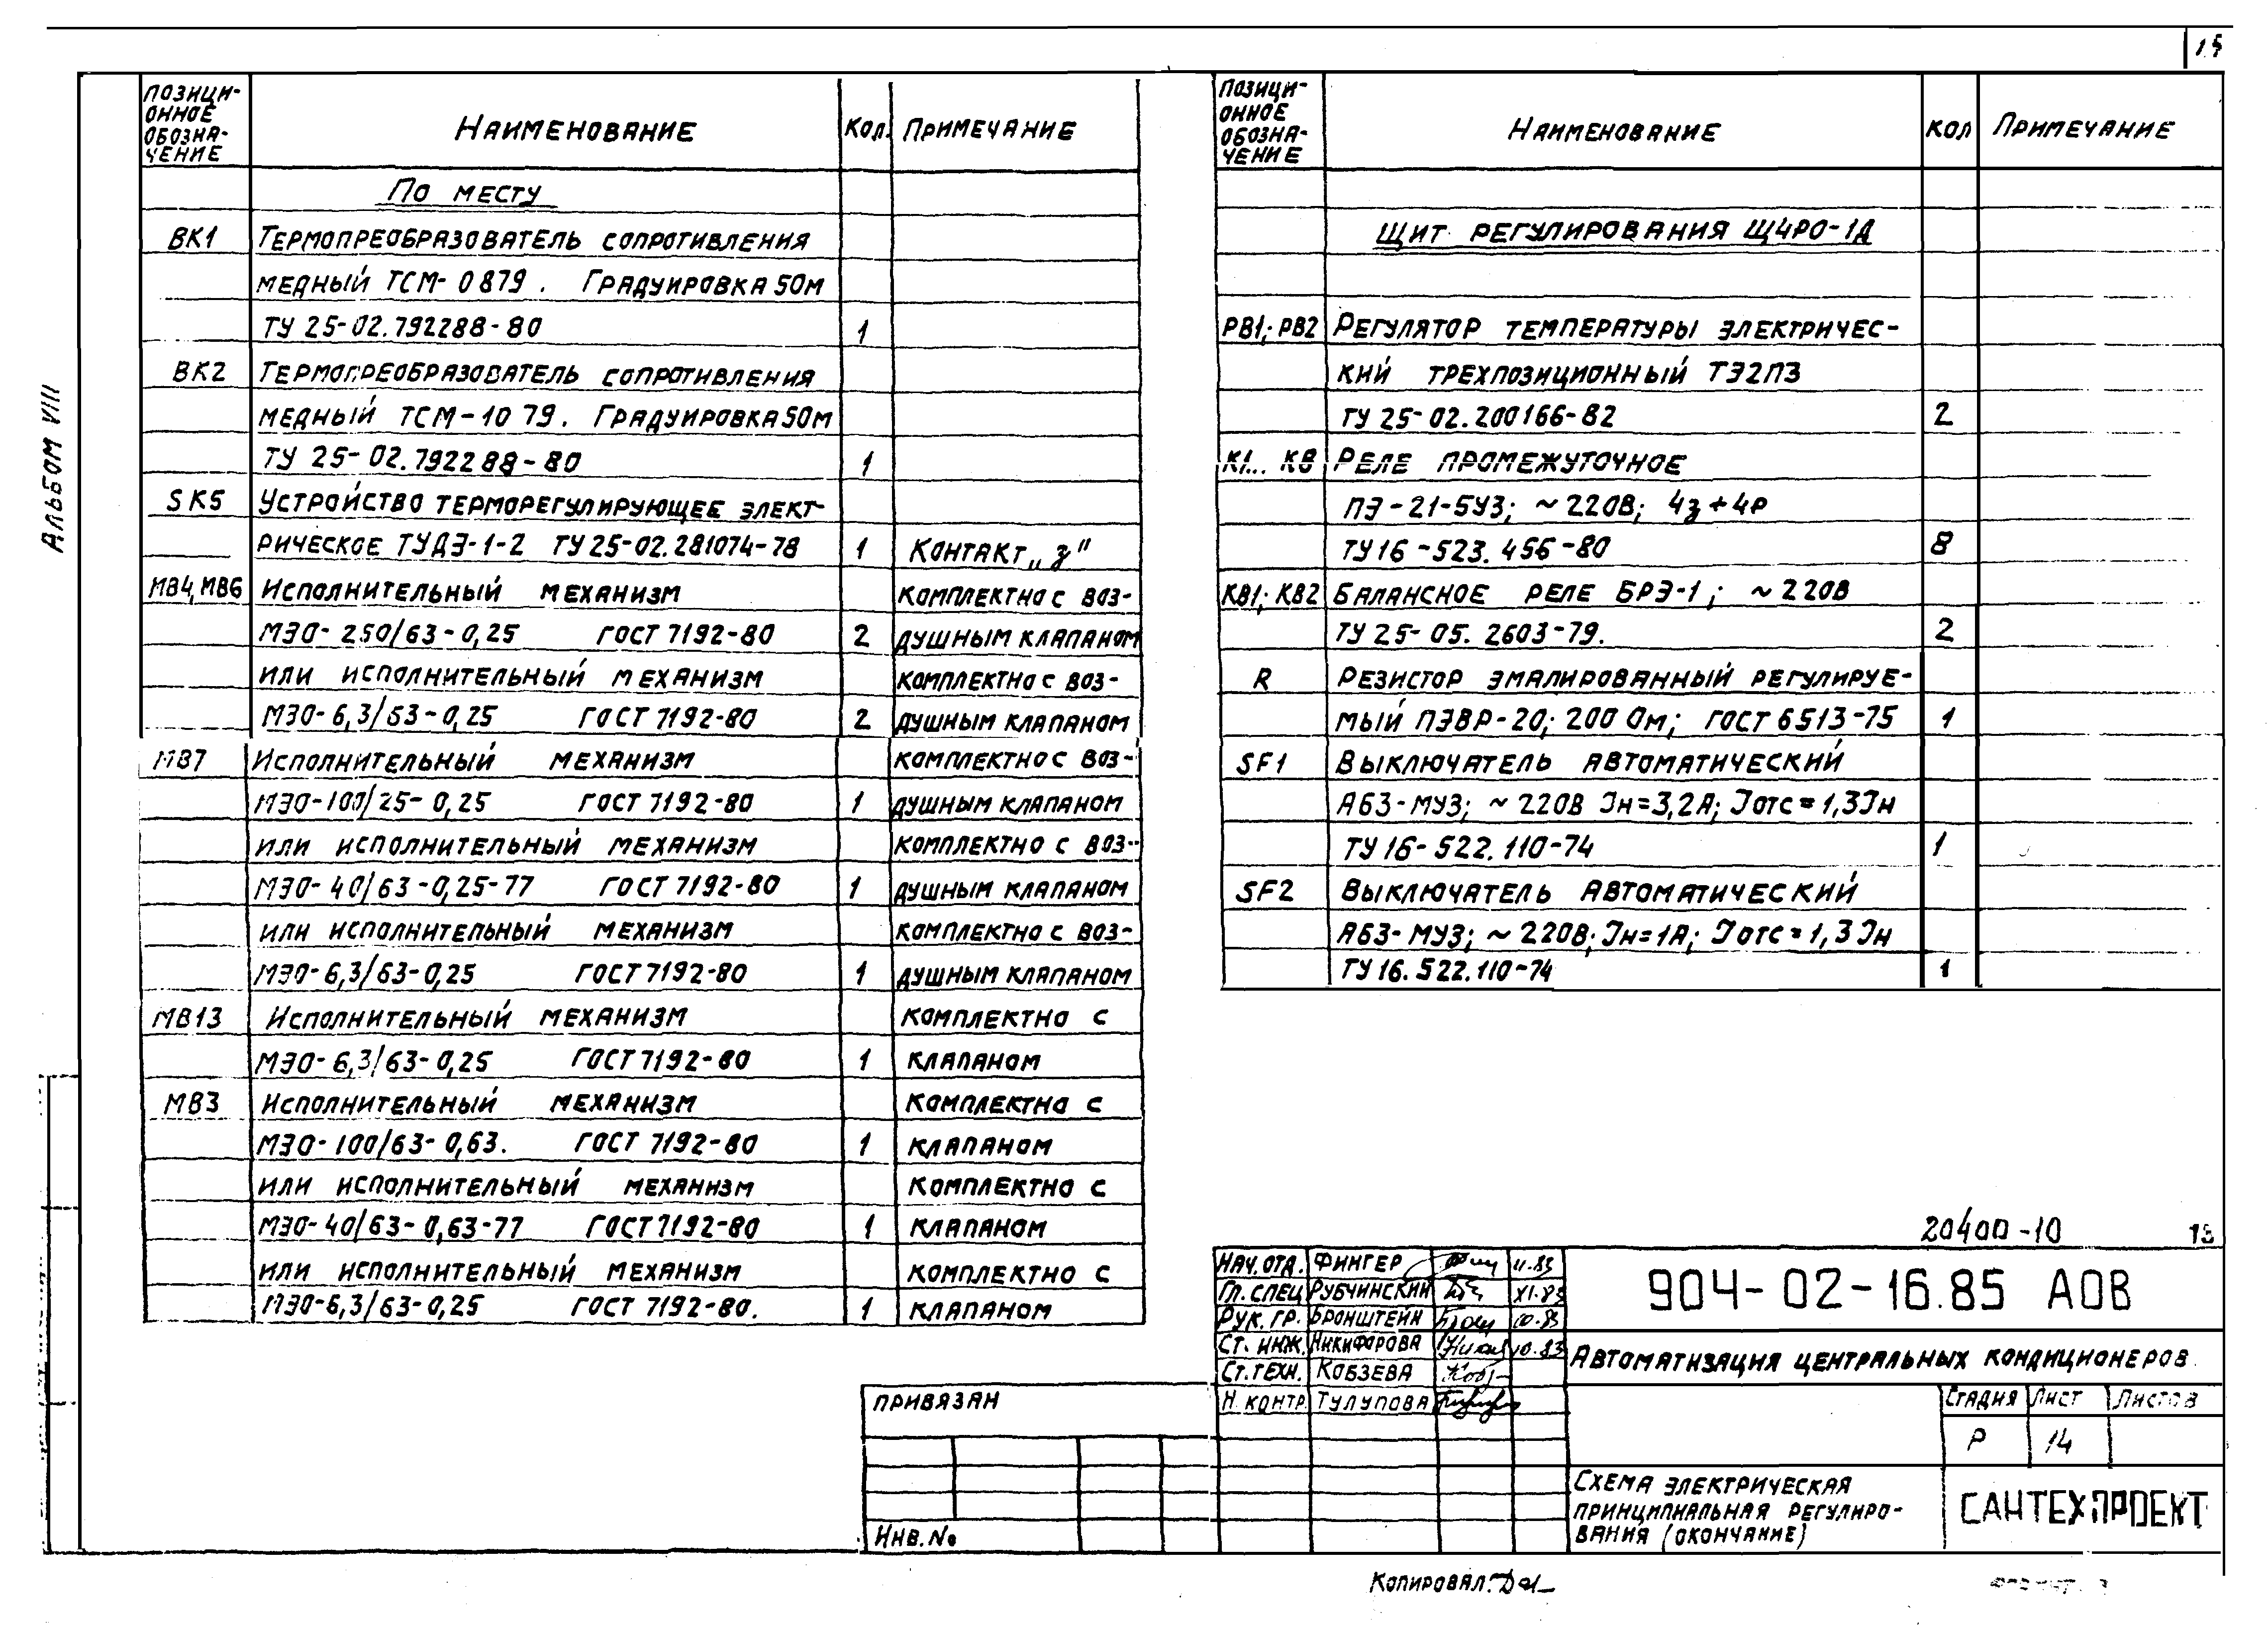 15
Альбом VIII
Позици-
онное
обозна-
чение
Наименование
Кол.
Примечание
По месту
ВК1 Термопреобразователь сопротивления
медный ТСМ-0879. Градуировка 50м
ТУ 25-02.792288-80 1
ВК2 Термопреобразователь сопротивления
медный ТСМ-1079. Градуировка 50м
ТУ 25-02.792288-80 1
SK5 Устройство терморегулирующее элект-
рическое ТУДЭ-1-2 ТУ 25-02.281074-78 1 Контакт „з"
МВ4, МВ6 Исполнительный механизм комплектно с воз-
МЭО-250/63-0,25 ГОСТ 7192-80 2 душным клапаном
или исполнительный механизм комплектно с воз-
МЭО-6,3/63-0,25 ГОСТ 7192-80 2 душным клапаном
МВ7 Исполнительный механизм комплектно с воз-
МЭО-100/25-0,25 ГОСТ 7192-80 1 душным клапаном
или исполнительный механизм комплектно с воз-
МЭО-40/63-0,25-77 ГОСТ 7192-80 1 душным клапаном
или исполнительный механизм комплектно с воз-
МЭО-6,3/63-0,25 ГОСТ 7192-80 1 душным клапаном
МВ13 Исполнительный механизм комплектно с
МЭО-6,3/63-0,25 ГОСТ 7192-80 1 клапаном
МВ3 Исполнительный механизм комплектно с
МЭО-100/63-0,63. ГОСТ 7192-80 1 клапаном
или исполнительный механизм комплектно с
МЭО-40/63-0,63-77 ГОСТ 7192-80 1 клапаном
или исполнительный механизм комплектно с
МЭО-6,3/63-0,25 ГОСТ 7192-80. 1 клапаном
Позици-
онное
обозна-
чение
Наименование
Кол
Примечание
Щит регулирования Щ4РО-1Д
РВ1; РВ2 Регулятор температуры электричес-
кий трехпозиционный ТЭ2ПЗ
ТУ 25-02.200166-82 2
К1... К8 Реле промежуточное
ПЭ-21-5У3; ~220В; 4з+4р
ТУ 16-523.456-80 8
КВ1; КВ2 Балансное реле БРЭ-1; ~220В
ТУ 25-05.2603-79. 2
R Резистор эмалированный регулируе-
мый ПЭВР-20; 200 Ом; ГОСТ 6513-75 1
SF1 Выключатель автоматический
А63-МУ3; ~220В Jн=3,2А; Jотс=1,3Jн
ТУ 16-522.110-74 1
SF2 Выключатель автоматический
А63-МУ3; ~220В; Jн=1А; Jотс=1,3Jн
ТУ 16.522.110-74 1
20400-10 13
Нач. отд. Фингер 11.83
Гл. спец Рубчинский XI.83
Рук. гр. Бронштейн 10.83
Ст. инж. Никифорова 10.83
Ст. техн. Кобзева
Н. контр. Тулупова
904-02-16.85 АОВ
Автоматизация центральных кондиционеров.
Стадия Лист Листов
Р 14
Схема электрическая
принципиальная регулиро-
вания (окончание)
САНТЕХПРОЕКТ
Привязан
Инв. №
Копировал: